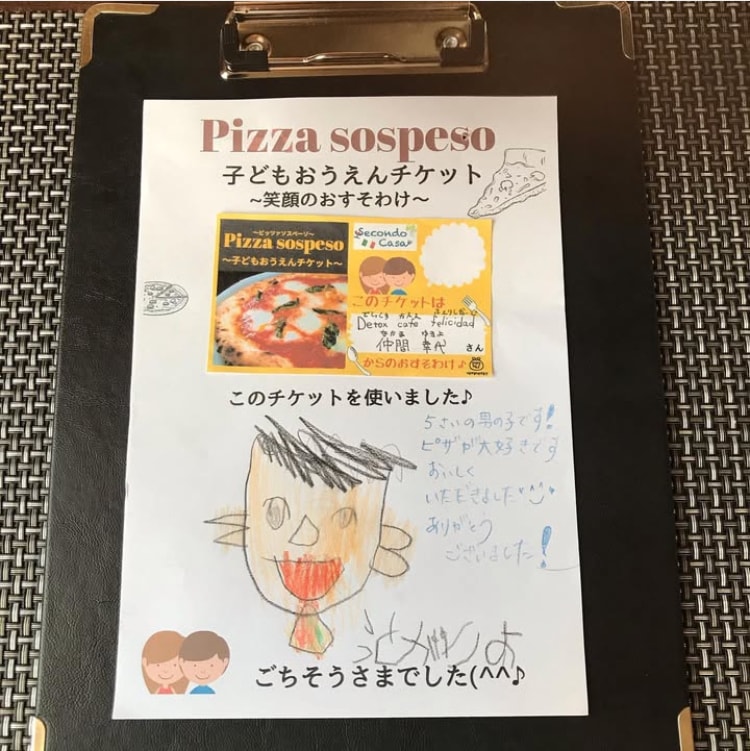 Pizza sospeso
子どもおうえんチケット
~笑顔のおすそわけ~
~ピッツァソスペーゾ~
Pizza sospeso
~子どもおうえんチケット~
Secondo
Casa
このチケットは
でとっくす かふぇ
Detox cafe felicidad
なかま ゆきよ
仲間 幸代 さん
からのおすそわけ♪
このチケットを使いました♪
5さいの男の子です!
ピザが大好きです
おいしく
いただきました
ありがとう
ございました!
ごちそうさまでした(^^♪